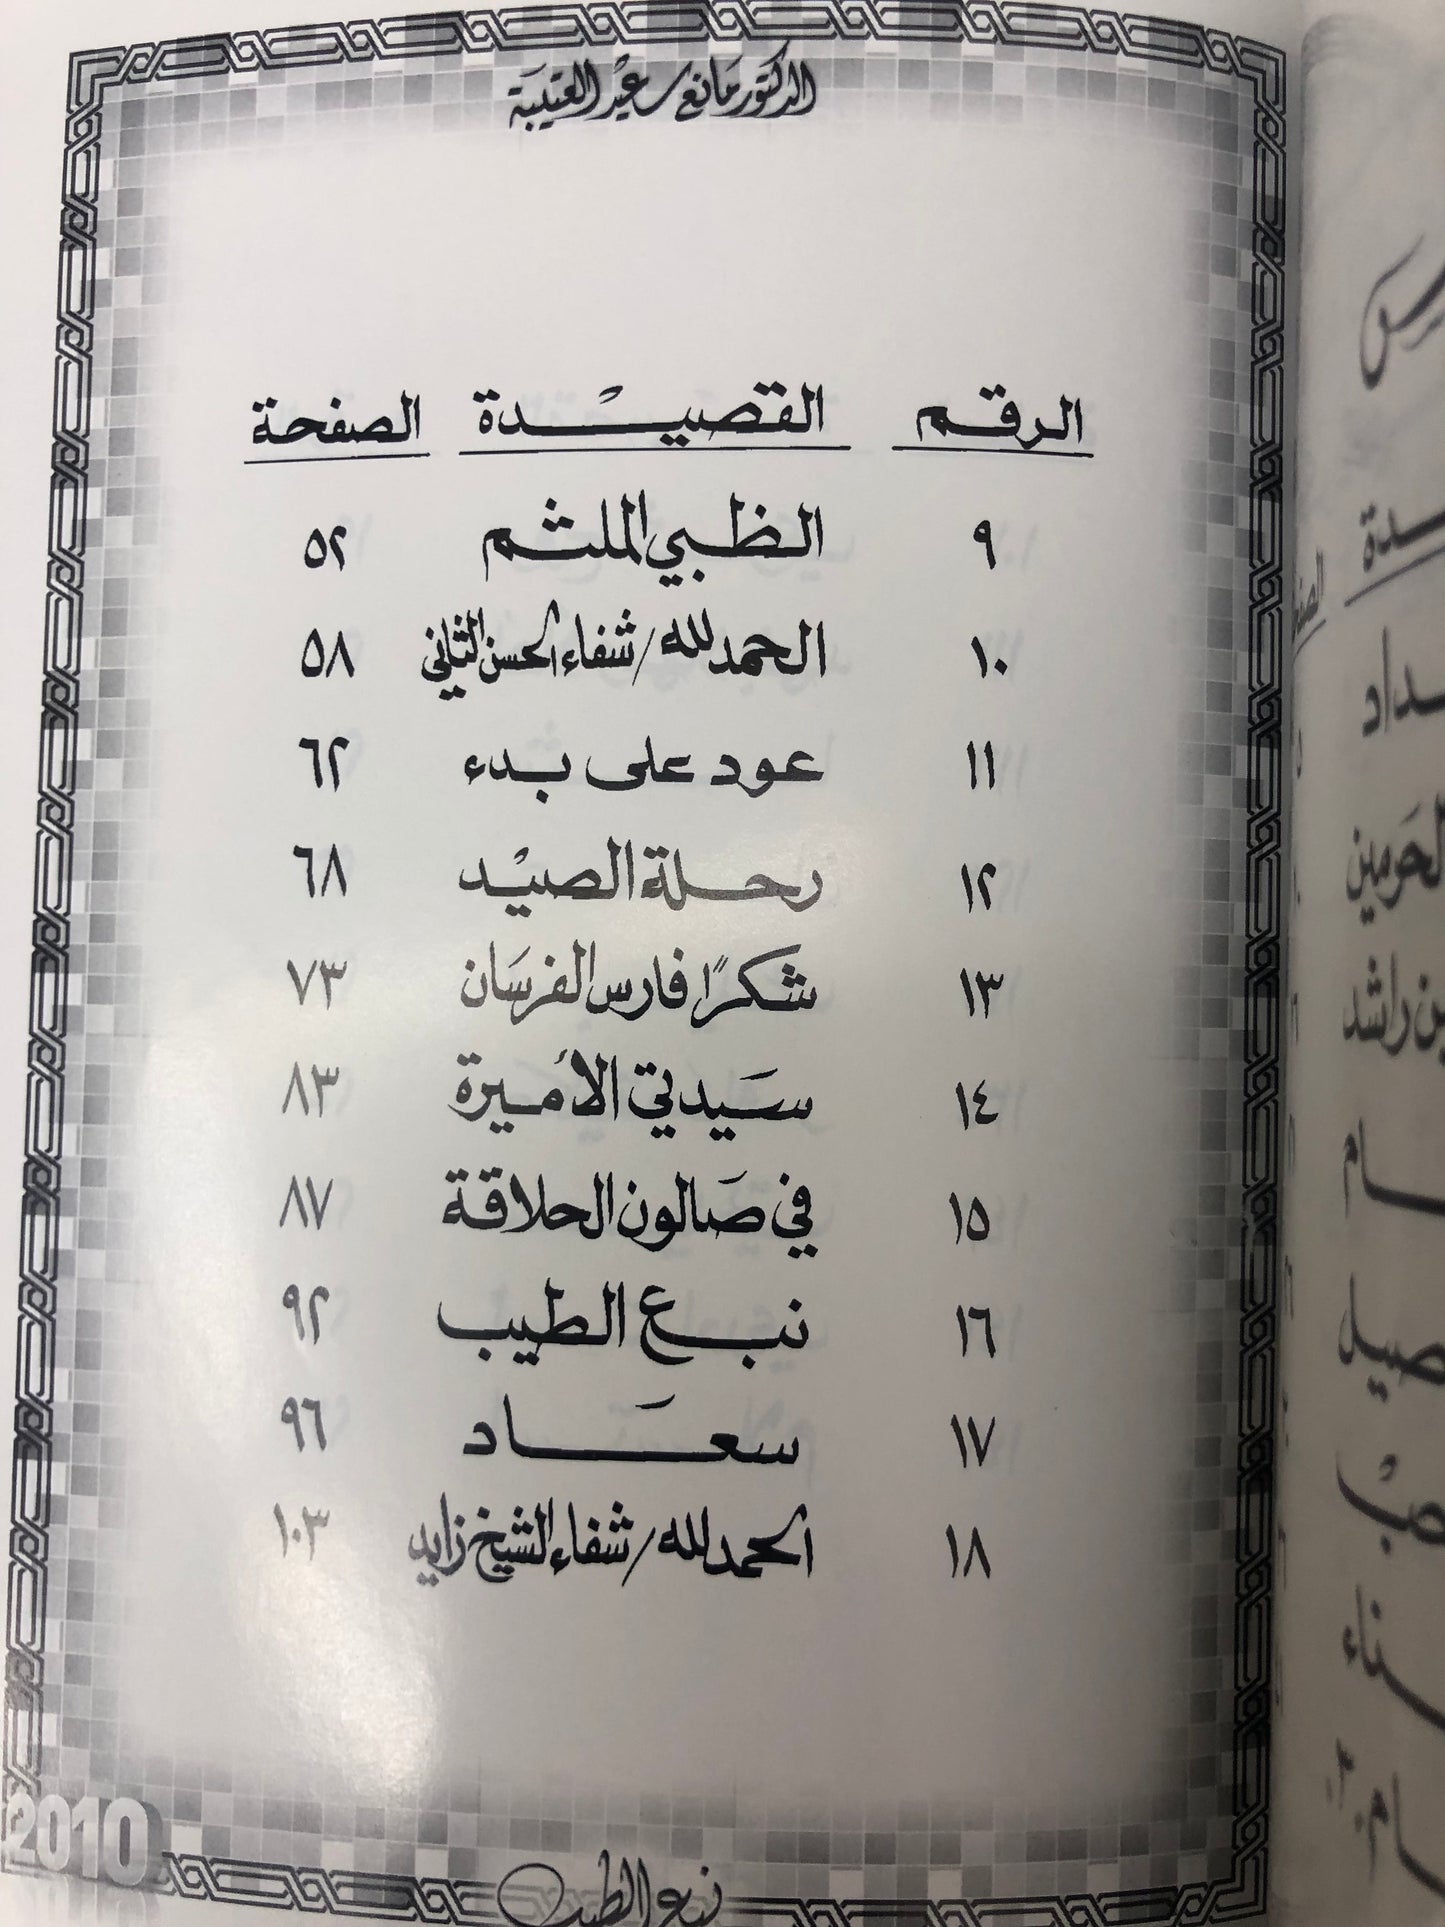 الدكتور مانع سعيد العتيبة
الرقم القصيدة الصفحة
٩ الظبي الملثم ٥٢
١٠ الحمد لله / شفاء الحسن الثاني ٥٨
١١ عود على بدء ٦٢
١٢ رحلة الصيْد ٦٨
١٣ شكرًا فارس الفرسَان ٧٣
١٤ سَيدتي الأميرة ٨٣
١٥ في صَالون الحلاقة ٨٧
١٦ نبع الطيب ٩٢
١٧ سعَاد ٩٦
١٨ الحمد لله / شفاء الشيخ زايد ١٠٣
2010
نبع الطيب